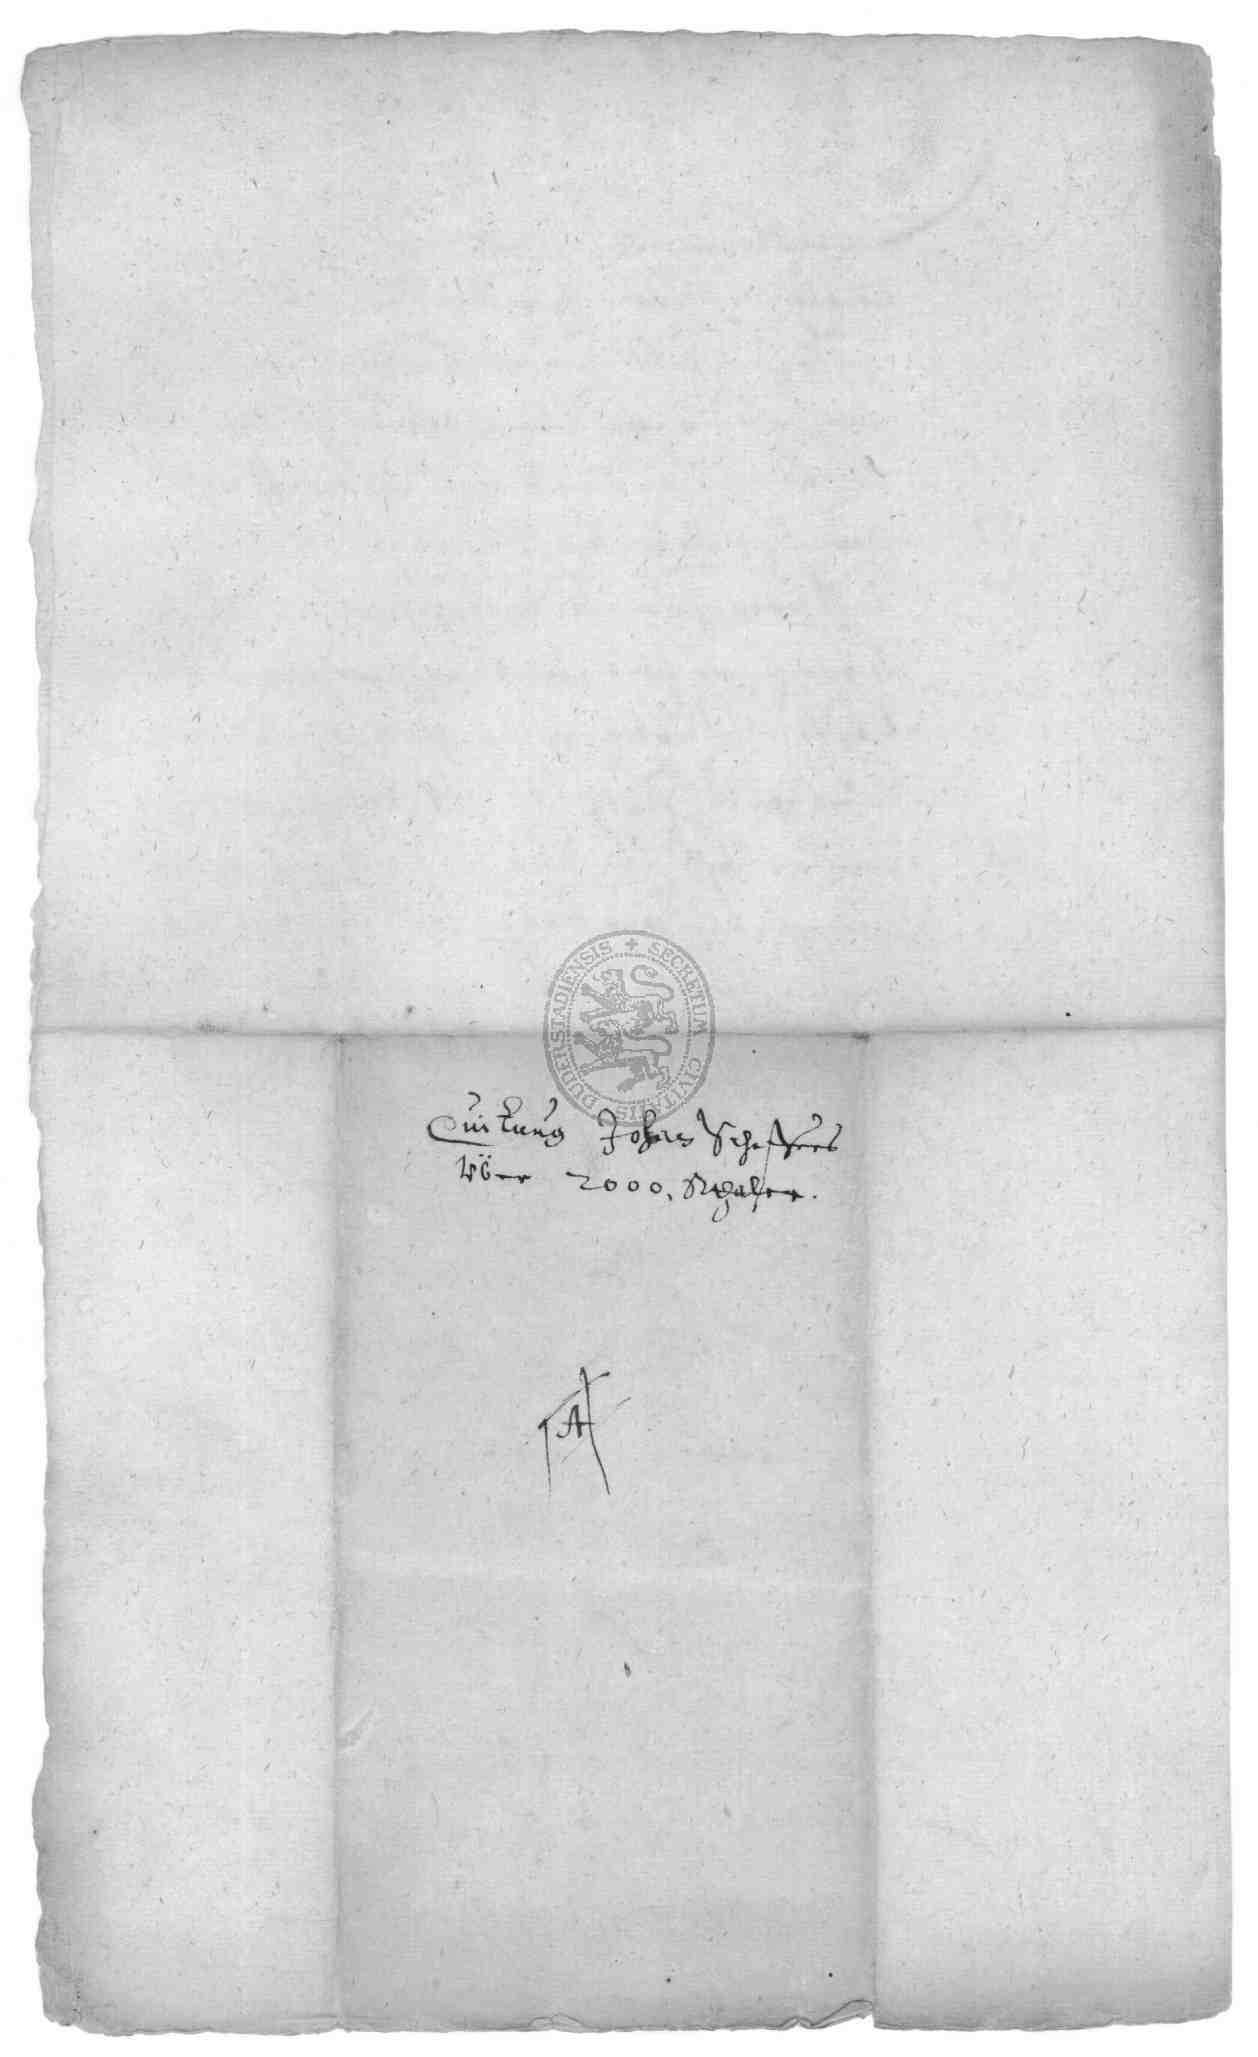 SECRETUM CIVITATIS DUDERSTADIENSIS
Quitung Johan Scheffers
über 2000, Rthaler.
A